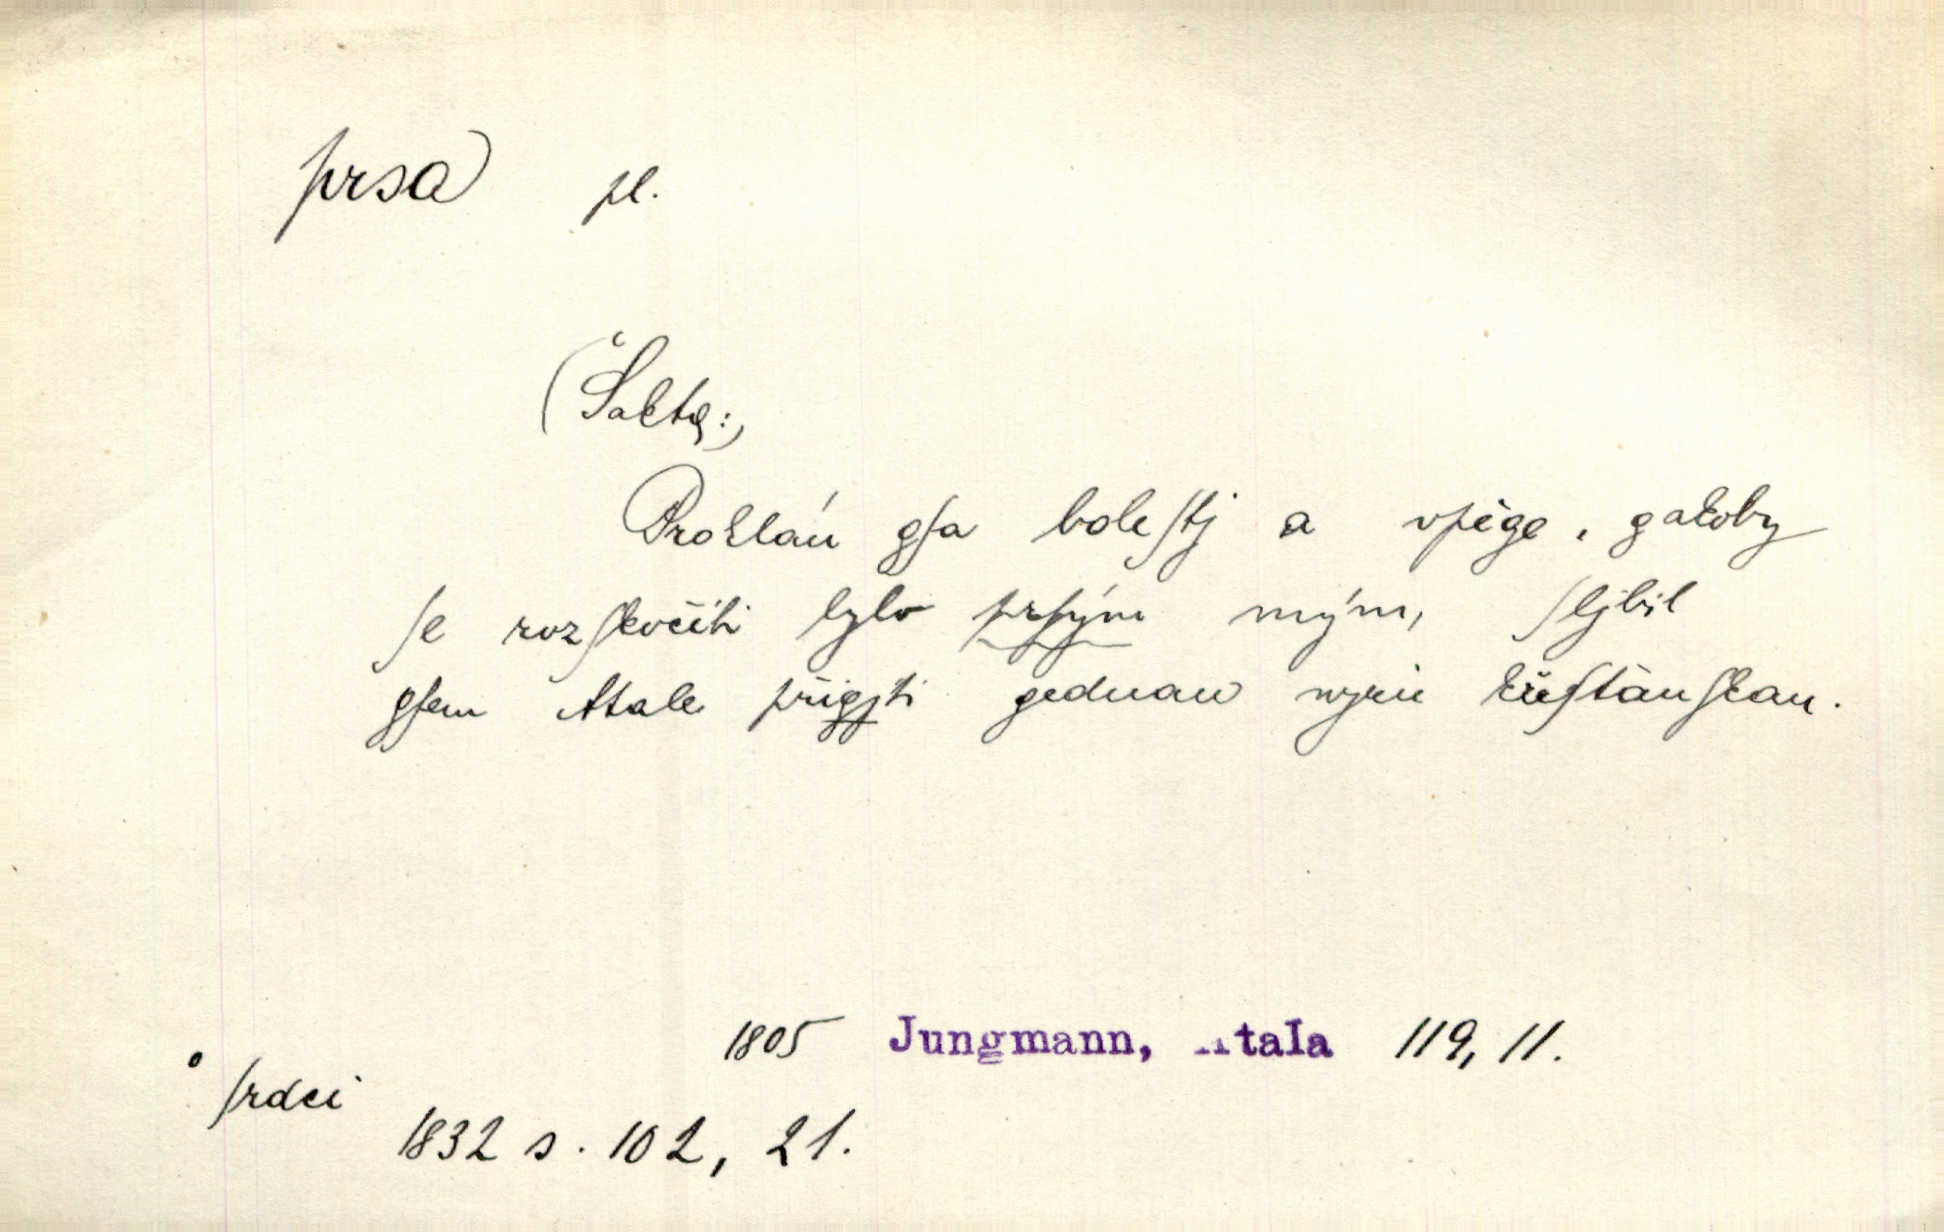 prsa pl.
(Šakta:)
Proklán gſa boleſtj a vpěge, gakoby
ſe rozſkočiti bylo prſým mým, ſljbil
gſem Atale přigjti gednau wjru křeſťanſkau.
1805 Jungmann, Atala 119, 11.
° ſrdci
1832 s. 102, 21.